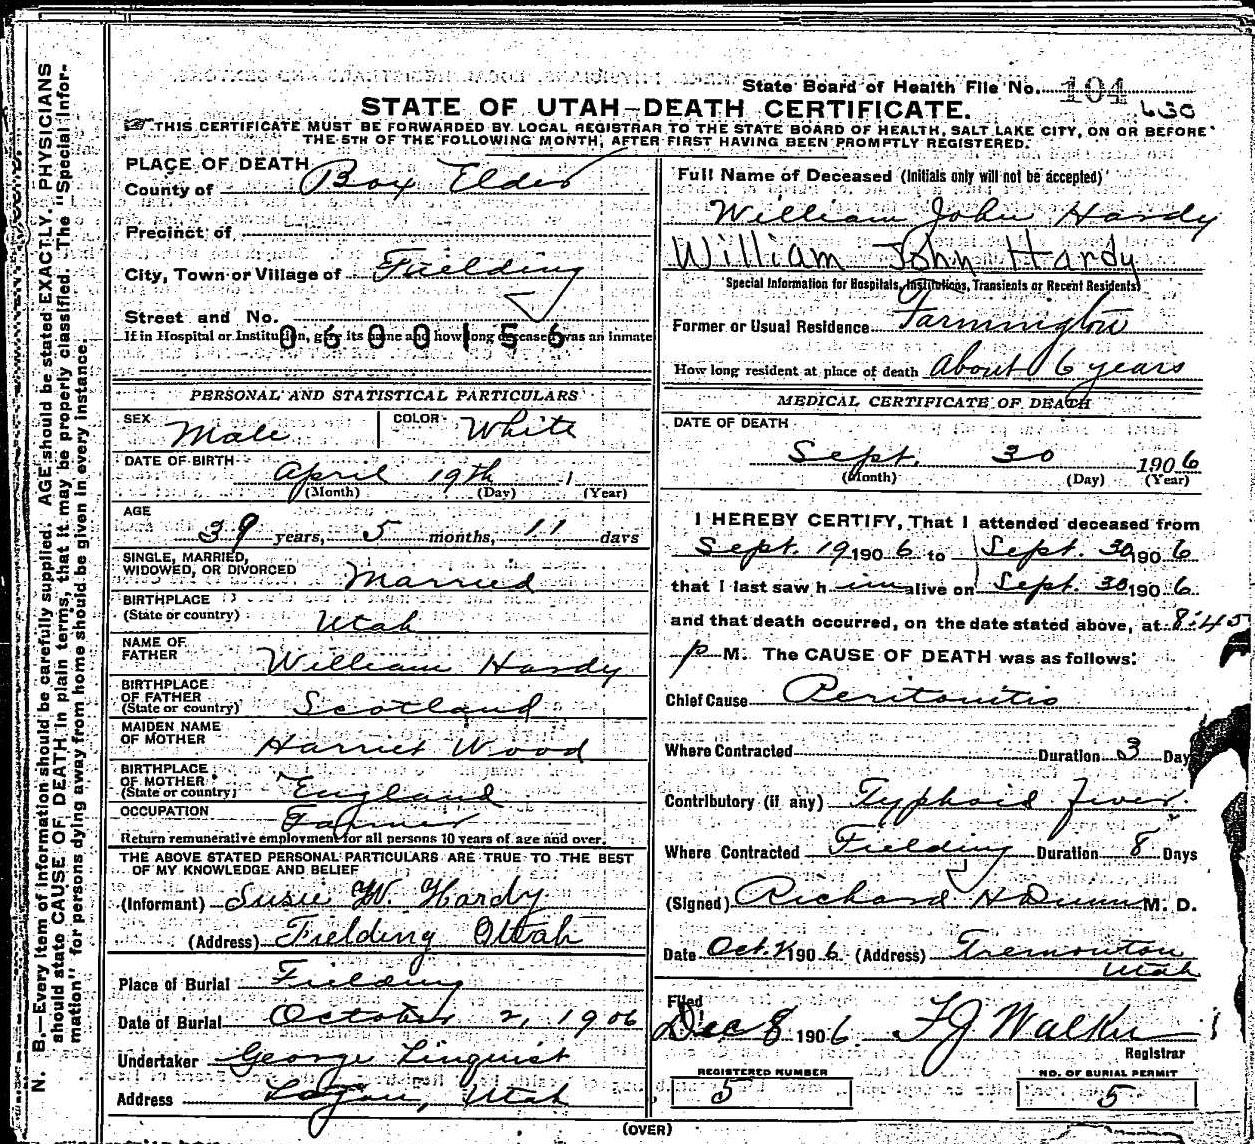 State Board of Health File No. 104
630
STATE OF UTAH—DEATH CERTIFICATE.
☞ THIS CERTIFICATE MUST BE FORWARDED BY LOCAL REGISTRAR TO THE STATE BOARD OF HEALTH, SALT LAKE CITY, ON OR BEFORE
THE 5TH OF THE FOLLOWING MONTH, AFTER FIRST HAVING BEEN PROMPTLY REGISTERED.
N. B.—Every item of information should be carefully supplied. AGE should be stated EXACTLY. PHYSICIANS
should state CAUSE OF DEATH in plain terms, that it may be properly classified. The "Special Infor-
mation" for persons dying away from home should be given in every instance.
PLACE OF DEATH
County of Box Elder
Precinct of
City, Town or Village of Fielding
Street and No.
If in Hospital or Institution, give its name and how long deceased was an inmate
0600156
PERSONAL AND STATISTICAL PARTICULARS
SEX Male COLOR White
DATE OF BIRTH April 19th 1
(Month) (Day) (Year)
AGE
39 years, 5 months, 11 days
SINGLE, MARRIED,
WIDOWED, OR DIVORCED Married
BIRTHPLACE
(State or country) Utah
NAME OF
FATHER William Hardy
BIRTHPLACE
OF FATHER
(State or country) Scotland
MAIDEN NAME
OF MOTHER Harriet Wood
BIRTHPLACE
OF MOTHER
(State or country) England
OCCUPATION Farmer
Return remunerative employment for all persons 10 years of age and over.
THE ABOVE STATED PERSONAL PARTICULARS ARE TRUE TO THE BEST
OF MY KNOWLEDGE AND BELIEF
(Informant) Susie W. Hardy
(Address) Fielding Utah
Place of Burial Fielding
Date of Burial October 2, 1906
Undertaker George Linquist
Address Logan, Utah
Full Name of Deceased (Initials only will not be accepted)
William John Hardy
William John Hardy
Special Information for Hospitals, Institutions, Transients or Recent Residents
Former or Usual Residence Farmington
How long resident at place of death About 6 years
MEDICAL CERTIFICATE OF DEATH
DATE OF DEATH
Sept. 30 1906
(Month) (Day) (Year)
I HEREBY CERTIFY, That I attended deceased from
Sept. 19 1906 to Sept. 30 1906
that I last saw h im alive on Sept. 30 1906
and that death occurred, on the date stated above, at 8:45
p M. The CAUSE OF DEATH was as follows:
Chief Cause Peritonitis
Where Contracted Duration 3 Day
Contributory (if any) Typhoid fever.
Where Contracted Fielding Duration 8 Days
(Signed) Richard H Dunn M. D.
Date Oct. 1 1906 (Address) Tremonton
Utah
Filed
Dec 8 1906. F J Walker
Registrar
REGISTERED NUMBER
5
NO. OF BURIAL PERMIT
5
(OVER)